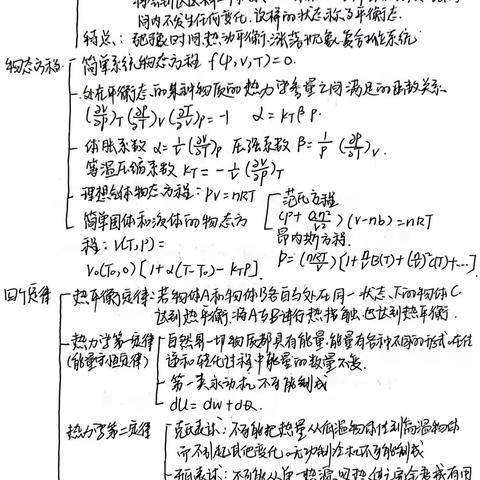 间内不发生任何变化，这样的状态称为平衡态.
特点：弛豫时间 热动平衡 涨落现象 复合孤立系统
物态方程
简单系统物态方程 f(p,v,T)=0.
处在平衡态的某种物质的热力学参量之间满足的函数关系.
(∂V/∂p)T (∂p/∂T)V (∂T/∂V)p = -1　α = κT β p.
体胀系数 α=1/V(∂V/∂T)p 压强系数 β=1/p(∂p/∂T)V.
等温压缩系数 κT=-1/V(∂V/∂p)T
理想气体物态方程：pV=nRT
范氏方程
(p+an²/V²)(V-nb)=nRT
简单固体和液体的物态方
程：V(T,p)=
V₀(T₀,0)[1+α(T-T₀)-κTp].
昂内斯方程.
p=(nRT/V)[1+n/V B(T)+(n/V)²C(T)+...]
四个定律
热平衡定律：若物体A和物体B各自与处在同一状态下的物体C
达到热平衡，将A与B进行热接触，也达到热平衡.
热力学第一定律
(能量守恒定律)
自然界一切物质都具有能量，能量有各种不同的形式，在传
递和转化过程中能量的数量不变.
第一类永动机不可能制成
dU=dW+dQ.
热力学第二定律
克氏表述：不可能把热量从低温物体传到高温物体
而不引起其他变化，无功制冷机不可能制成
开氏表述：不可能从单一热源吸热使之完全变成有用